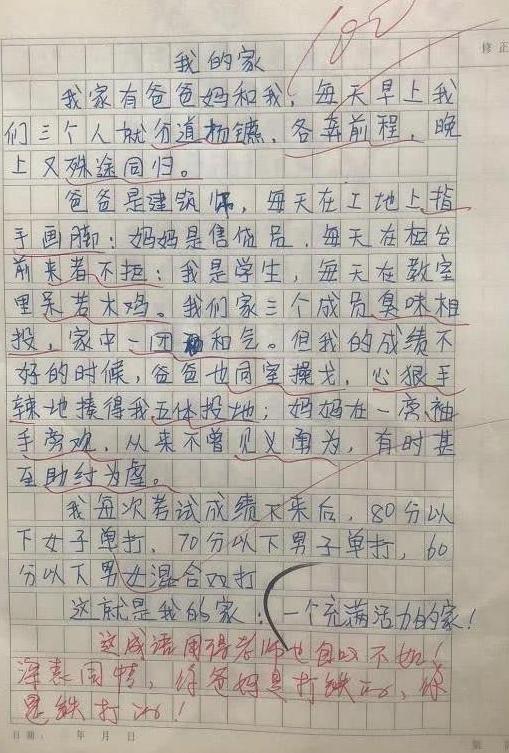 100
修正
我的家
我家有爸爸妈和我，每天早上我
们三个人就分道扬镳，各奔前程，晚
上又殊途同归。
爸爸是建筑师，每天在工地上指
手画脚；妈妈是售值员，每天在柜台
前来者不拒；我是学生，每天在教室
里呆若木鸡。我们家三个成员臭味相
投，家中一团和气。但我的成绩不
好的时候，爸爸也同室操戈，心狠手
辣地揍得我五体投地；妈妈在一旁袖
手旁观，从来不曾见义勇为，有时甚
至助纣为虐。
我每次考试成绩下来后，80分以
下女子单打，70分以下男子单打，60
分以下男女混合双打
这就是我的家：一个充满活力的家！
这成语用得老师也自叹不如！
深表同情，你爸妈是打铁的，你
是铁打的！
日期： 年 月 日
第